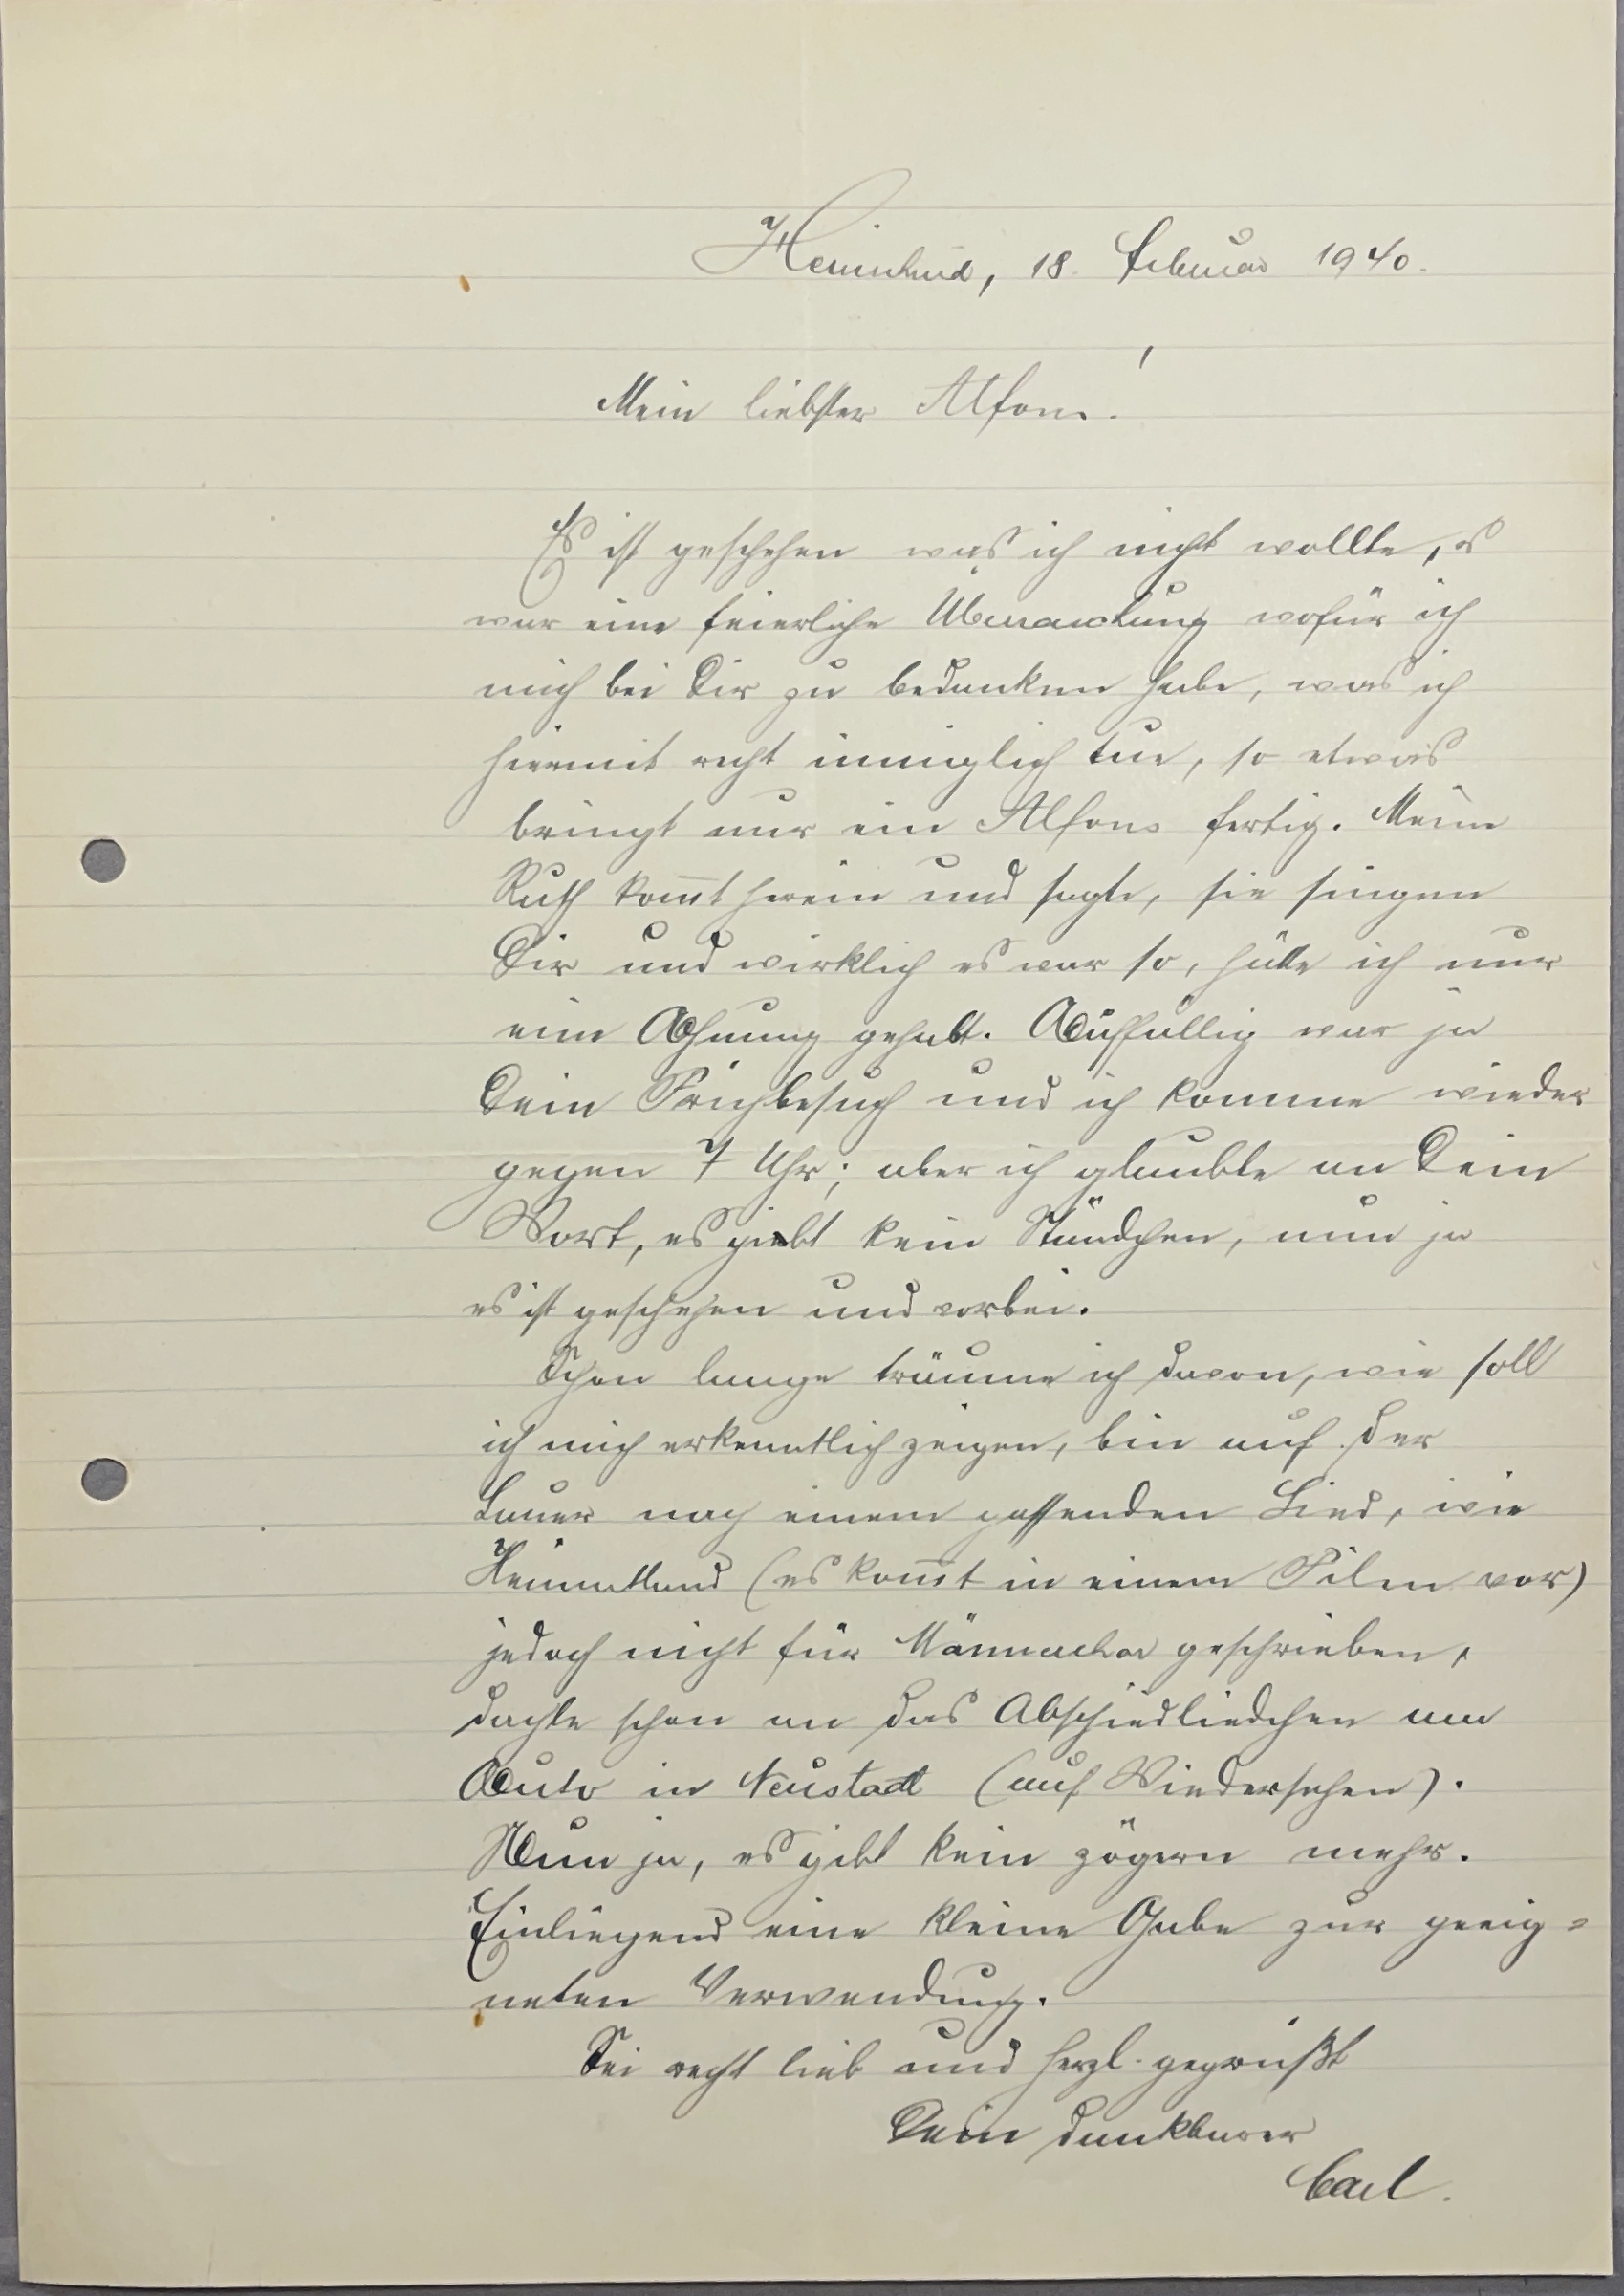 18. Februar 1940.
Mein liebster Alfons!
Es ist geschehen was ich nicht wollte, es
war eine feierliche Überraschung wofür ich
mich bei Dir zu bedanken habe, was ich
hiermit recht inniglich tue, so etwas
bringt nur ein Alfons fertig. Meine
Ruth kom̅t herein und sagte, sie singen
Dir und wirklich es war so, hätte ich nur
eine Ahnung gehabt. Auffällig war ja
Dein Frühbesuch und ich komme wieder
gegen 7 Uhr; aber ich glaubte an Dein
Wort, es giebt kein Ständchen, nun ja
es ist geschehen und vorbei.
Schon lange träume ich davon, wie soll
ich mich erkenntlich zeigen, bin auf der
Lauer nach einem passenden Lied, wie
Heimatland (es kom̅t in einem Film vor)
jedoch nicht für Männerchor geschrieben,
dachte schon an das Abschiedliedchen am
Auto in Neustadt (auf Wiedersehen).
Nun ja, es gibt kein zögern mehr.
Einliegend eine kleine Gabe zur geeig=
neten Verwendung.
Sei recht lieb und herzl. gegrüßt
Dein dankbarer
Carl.